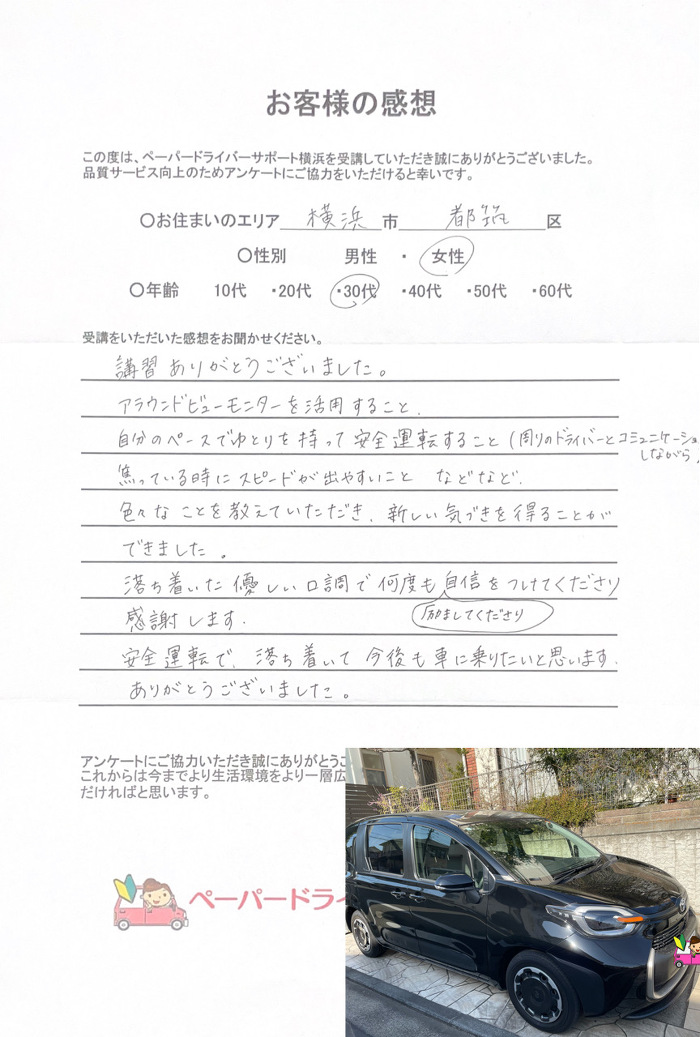 お客様の感想
この度は、ペーパードライバーサポート横浜を受講していただき誠にありがとうございました。
品質サービス向上のためアンケートにご協力をいただけると幸いです。
〇お住まいのエリア 横浜 市 都筑 区
〇性別 男性 ・ 女性
〇年齢 10代 ・20代 ・30代 ・40代 ・50代 ・60代
受講をいただいた感想をお聞かせください。
講習ありがとうございました。
アラウンドビューモニターを活用すること、
自分のペースでゆとりを持って安全運転すること(周りのドライバーとコミュニケーショ
しながら)
焦っている時にスピードが出やすいこと などなど、
色々なことを教えていただき、新しい気づきを得ることが
できました。
落ち着いた優しい口調で何度も自信をつけてくださり
励ましてくださり
感謝します。
安全運転で、落ち着いて今後も車に乗りたいと思います。
ありがとうございました。
アンケートにご協力いただき誠にありがとうご
これからは今までより生活環境をより一層広
だければと思います。
ペーパードライ